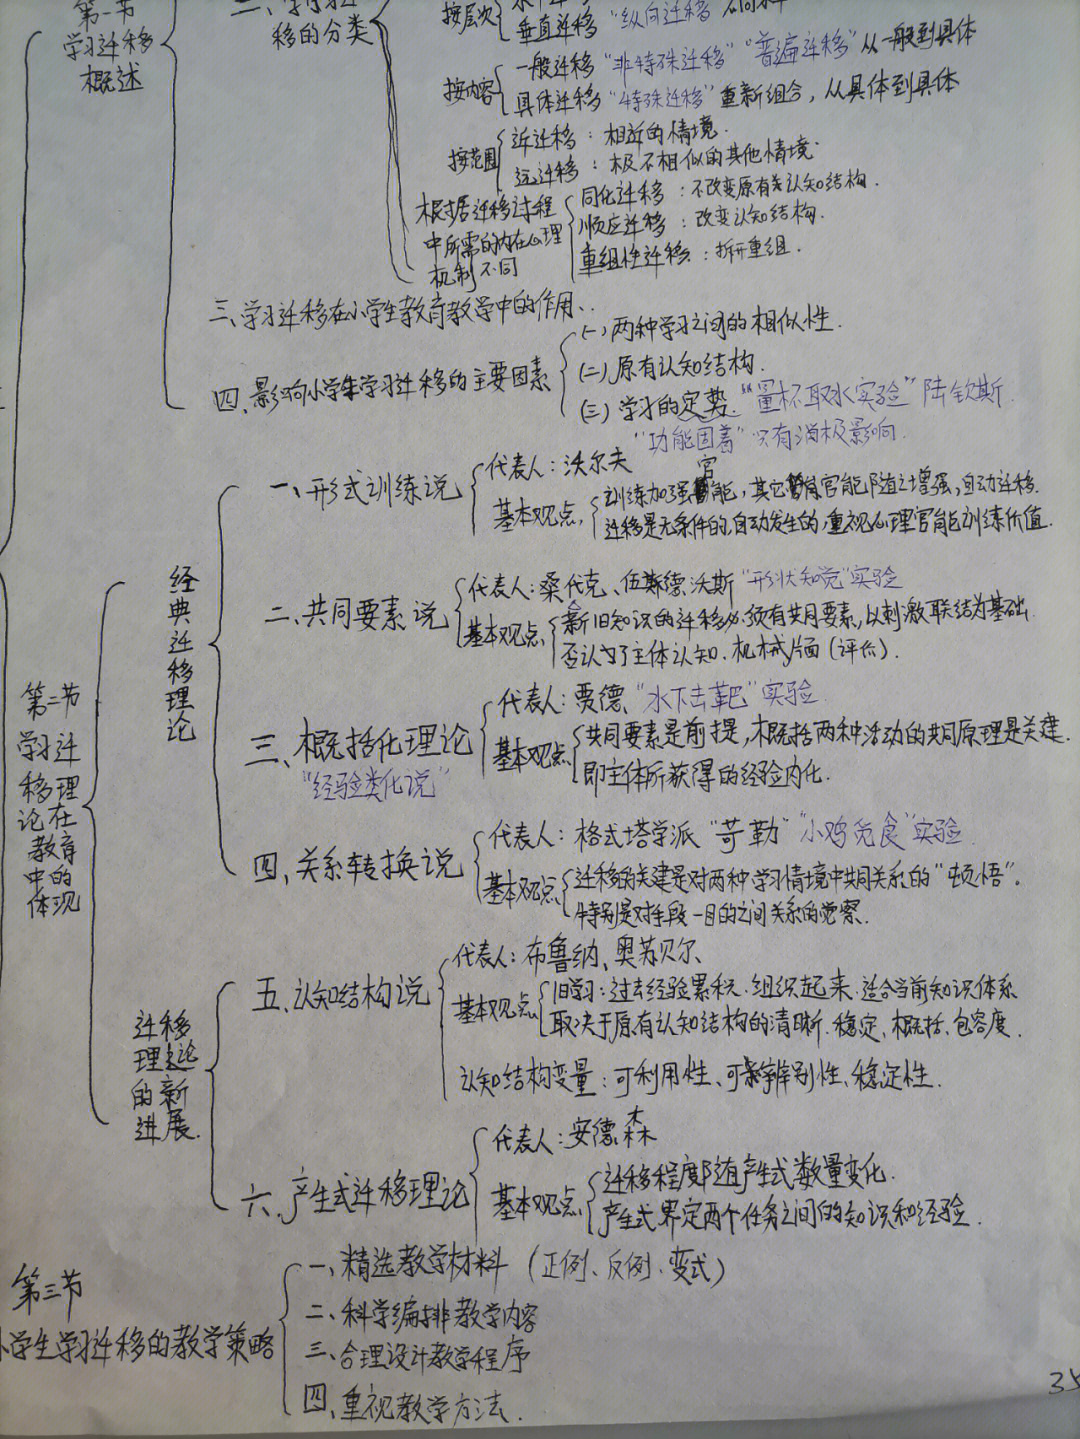 第一节
学习迁移
概述
移的分类
按层次
垂直迁移 "纵向迁移"
按内容
一般迁移 "非特殊迁移" "普遍迁移" 从一般到具体
具体迁移 "特殊迁移" 重新组合，从具体到具体
按范围
近迁移：相近的情境.
远迁移：极不相似的其他情境.
根据迁移过程
中所需的内在心理
机制不同
同化迁移：不改变原有认知结构.
顺应迁移：改变认知结构.
重组性迁移：拆开重组.
三、学习迁移在小学生教育教学中的作用.
四、影响小学生学习迁移的主要因素
(一)两种学习之间的相似性.
(二)原有认知结构.
(三)学习的定势. "量杯取水实验" 陆钦斯.
"功能固着" 只有消极影响.
第二节
学习迁
移理
论在
教育
中的
体现
经典迁移理论
一、形式训练说
代表人：沃尔夫
基本观点
训练加强官能，其它官能随之增强，自动迁移.
迁移是无条件的,自动发生的,重视心理官能训练价值.
二、共同要素说
代表人：桑代克、伍斯德沃斯 "形状知觉"实验
基本观点
新旧知识的迁移必须有共同要素，以刺激联结为基础.
否认了主体认知.机械片面(评价).
三、概括化理论
"经验类化说"
代表人：贾德 "水下击靶"实验
基本观点
共同要素是前提，概括两种活动的共同原理是关建.
即主体所获得的经验内化.
四、关系转换说
代表人：格式塔学派 "苛勒" "小鸡觅食"实验
基本观点
迁移的关建是对两种学习情境中共同关系的"顿悟"。
特别是对手段—目的之间关系的觉察.
迁移
理论
的新
进展.
五、认知结构说
代表人：布鲁纳、奥苏贝尔
基本观点
旧学习：过去经验累积.组织起来.适合当前知识体系
取决于原有认知结构的清晰.稳定、概括、包容度.
认知结构变量：可利用性、可辨别性、稳定性.
六、产生式迁移理论
代表人：安德森
基本观点
迁移程度随产生式数量变化.
产生式界定两个任务之间的知识和经验.
第三节
小学生学习迁移的教学策略
一、精选教学材料（正例、反例、变式）
二、科学编排教学内容
三、合理设计教学程序
四、重视教学方法.
35